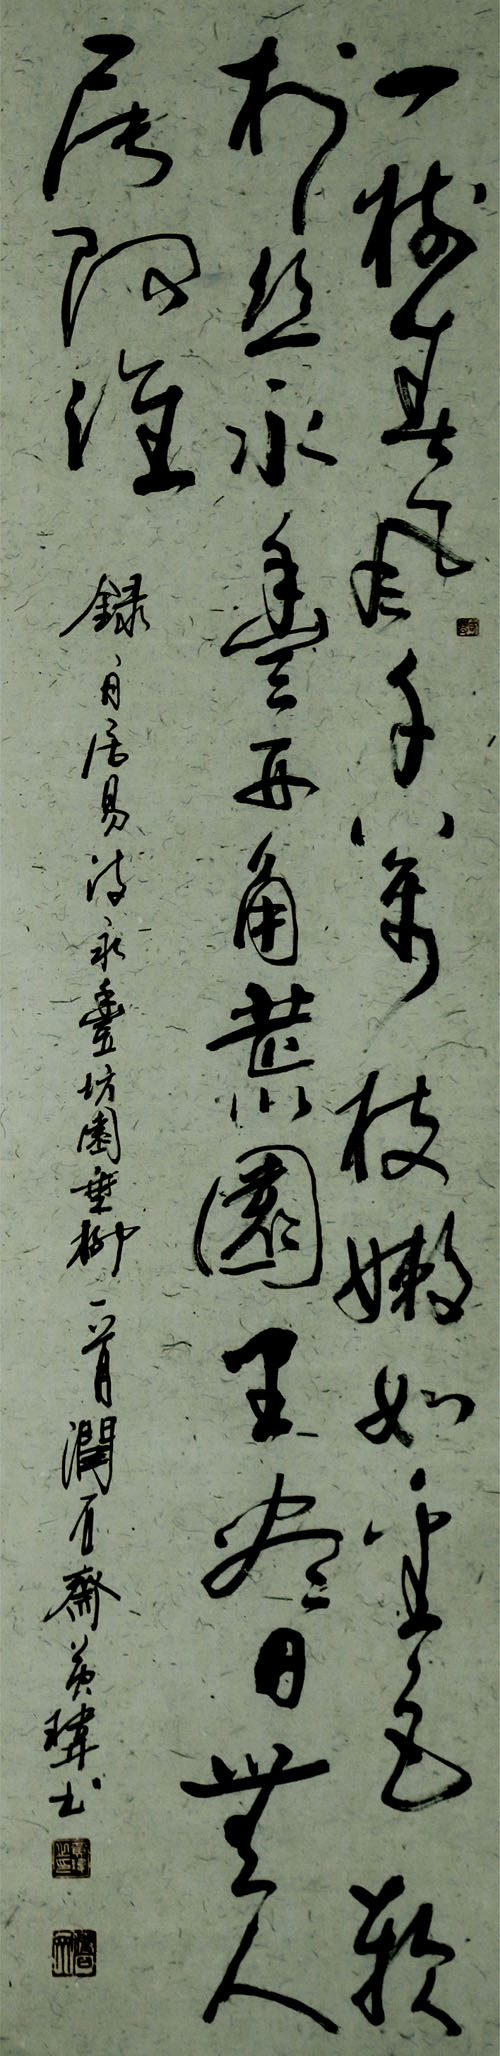 一樹春風千萬枝嫩如金色軟
於絲永豐西角荒園里盡日無人
屬阿誰
錄白居易詩永豐坊園垂柳一首潤石齋黃瑋書